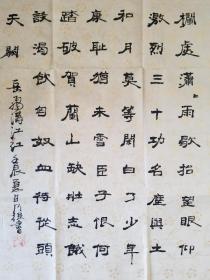 欄處瀟〻雨歇抬望眼仰
激烈三十功名塵與土
和月莫等閒白了少年
康耻猶未雪臣子恨何
踏破賀蘭山缺壯志飢
談渴飲匈奴血待從頭
天闕
岳飛滿江红壬辰夏